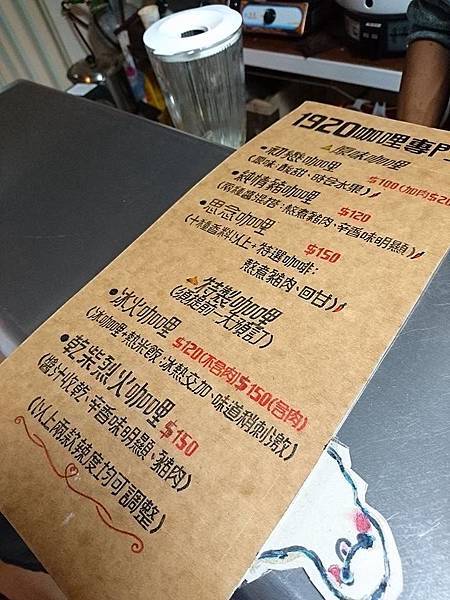 1920咖哩專門
原味咖哩
•初戀咖哩 $100(加肉$20
(風味:酸甜、時令水果)
•純情豬咖哩 $120
(兩種醬混搭:熬煮豬肉、辛香味明顯)
•思念咖哩 $150
(十種香料以上+特選咖啡:
熬煮豬肉、回甘)
特製咖哩
(須提前一天預訂)
•冰火咖哩 $120(不含肉)$150(含肉)
(冰咖哩+熱米飯:冰熱交加、味道稍刺激)
•乾柴烈火咖哩 $150
(醬汁收乾、辛香味明顯、豬肉)
(以上兩款辣度均可調整)